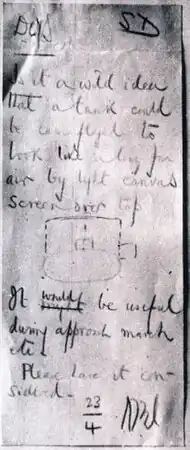 SD
Is it a wild idea
that a tank could
be camouflaged to
look like a lorry from
air by light canvas
screen over top
It would be useful
during approach march
etc.
Please have it con-
sidered.
23
4